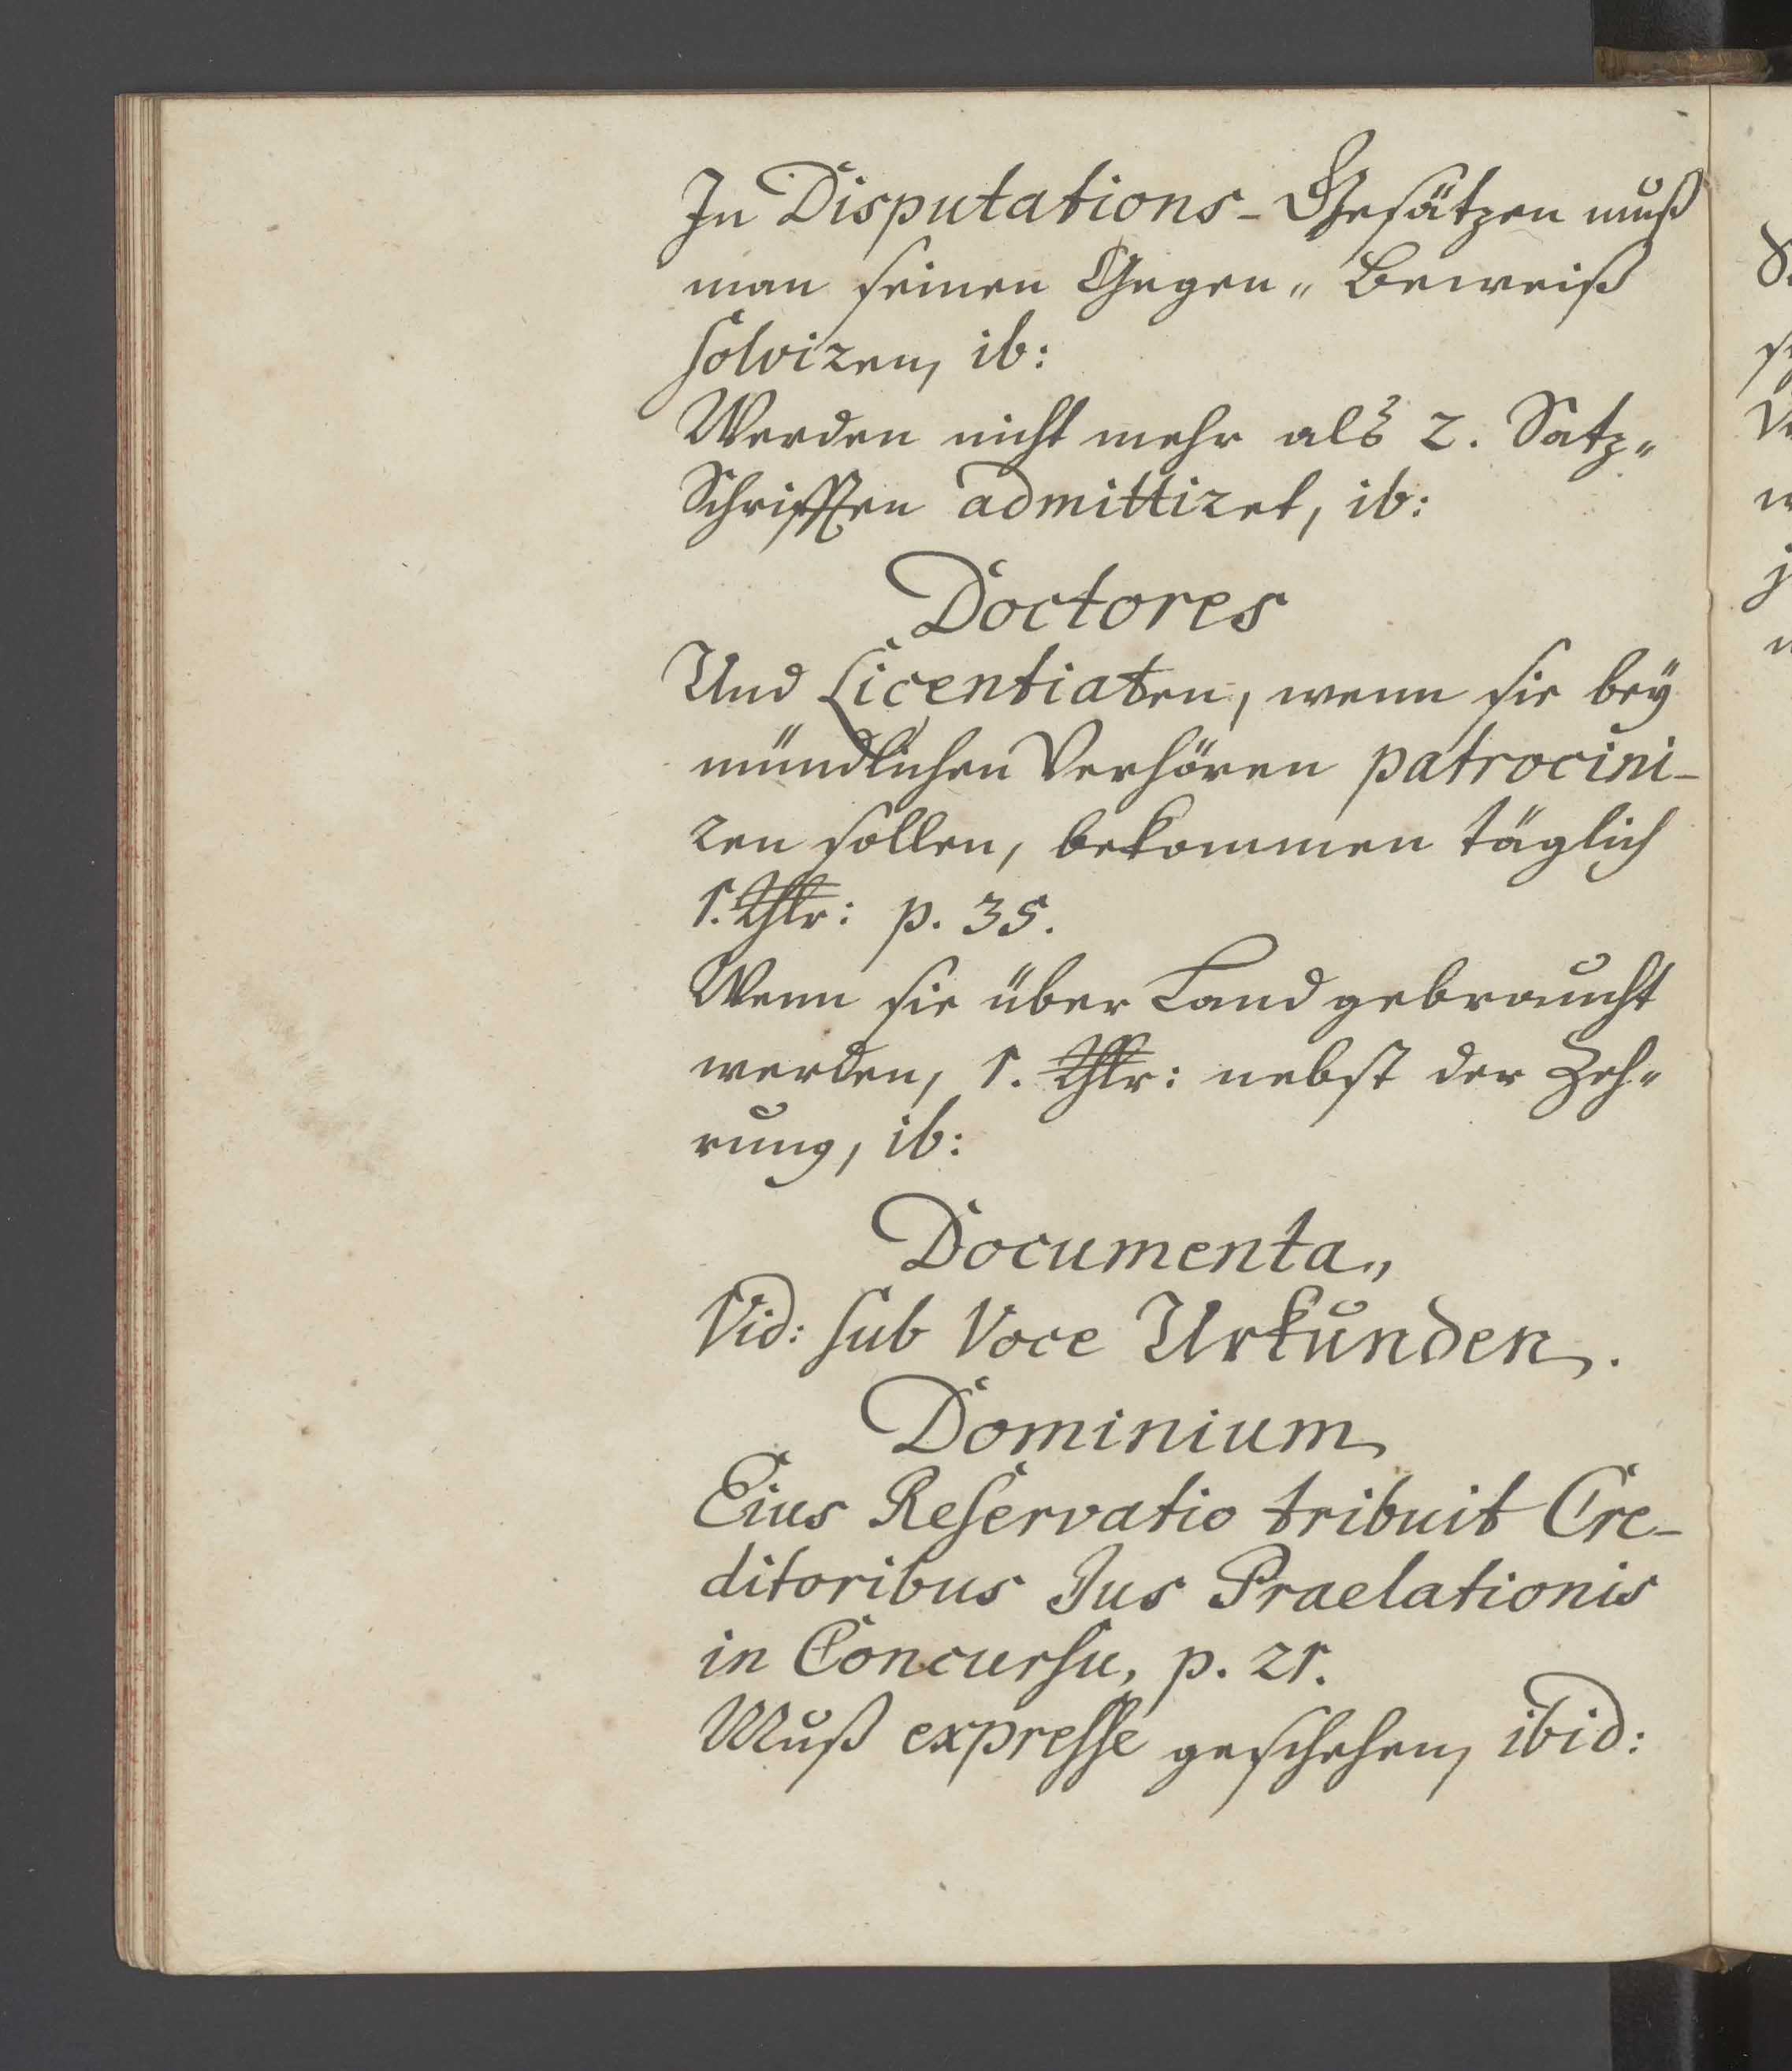 In Disputations-Gesätzen muß
man seinen Gegen„Beweiß
solviren, ib:
Werden nicht mehr als 2. Satz„
Schrifften admittiret, ib:
Doctores
Und Licentiaten, wenn sie bey
mündlichen Verhören patrocini-
ren sollen, bekommen täglich
1. Thlr: p. 35.
Wenn sie über Land gebraucht
werden, 1. Thlr: nebst der Zeh„
rung, ib:
Documenta„
Vid: sub Voce Urkunden.
Dominium
Eius Reservatio tribuit Cre-
ditoribus Jus Praelationis
in Concursu, p. 21.
Muß expresse geschehen, ibid: